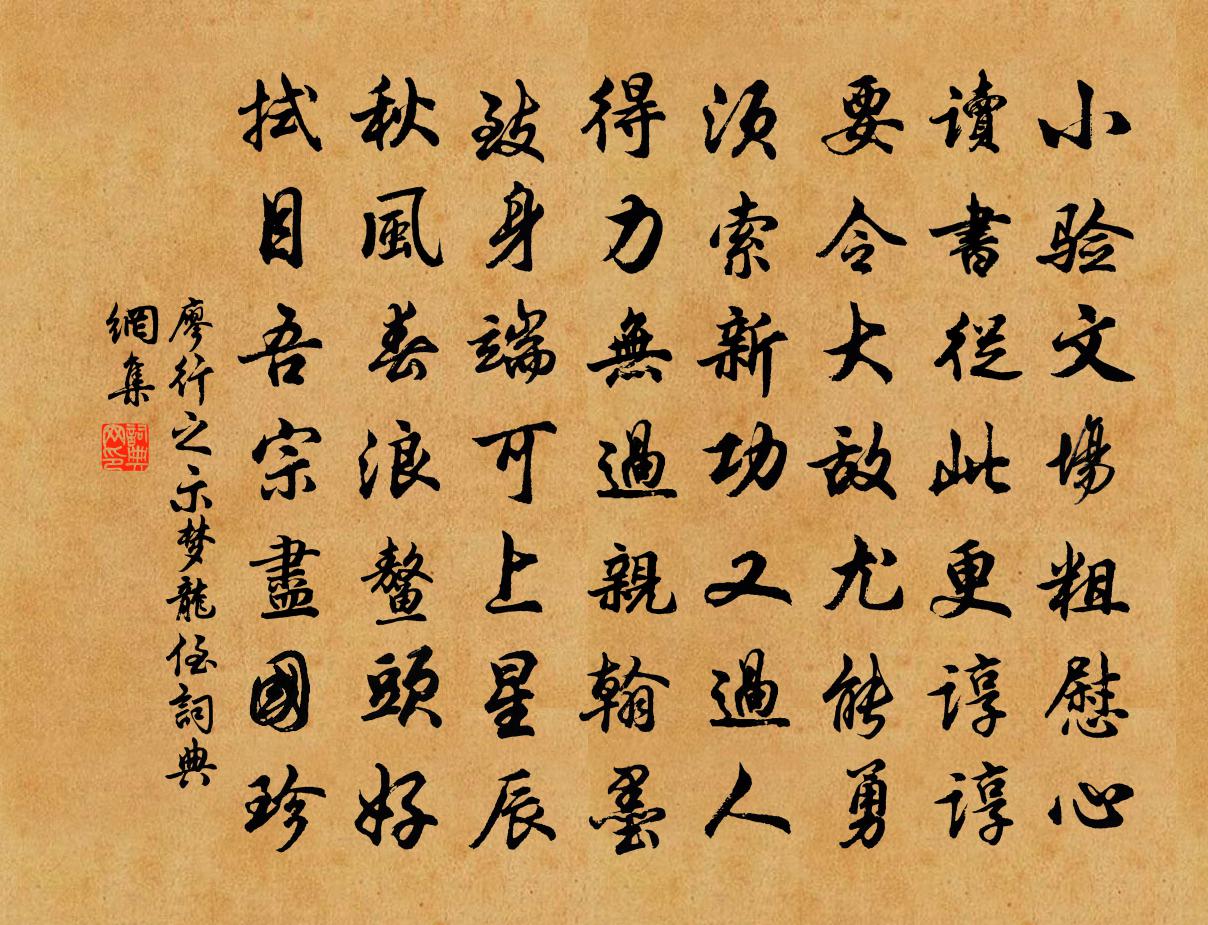 小验文場粗慰心
讀書從此更諄諄
要令大敌尤能勇
須索新功又過人
得力無過親翰墨
致身端可上星辰
秋風春浪鰲頭好
拭目吾宗盡國珍
廖行之示梦龍侄詞典
網集
詞典
网印